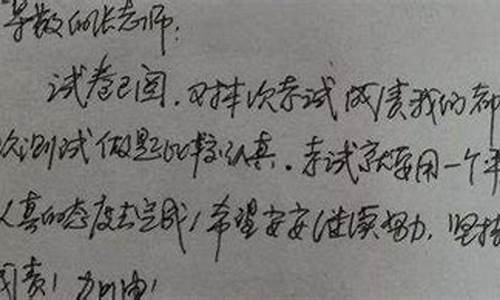 尊敬的张老师:
试卷已阅.对本次考试成绩我们都
次测试做题比较认真.考试就要用一个平
认真的态度去完成!希望安安继续努力.坚持
成绩!加油!